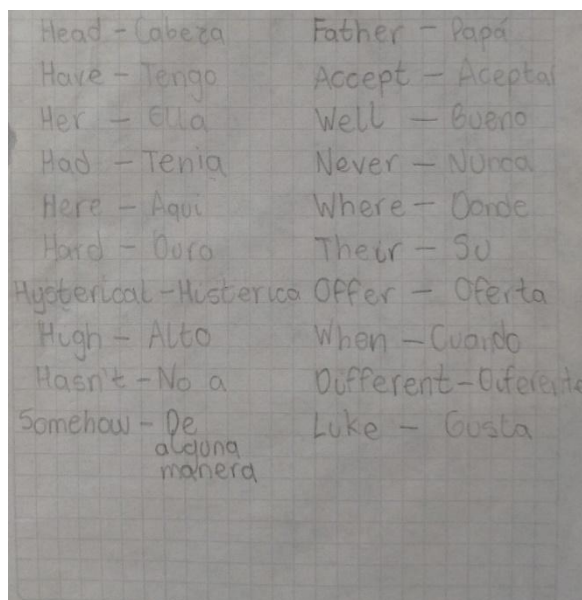 Head - Cabeza
Have - Tengo
Her - Ella
Had - Tenia
Here - Aqui
Hard - Duro
Hysterical - Histerica
High - Alto
Hasn't - No a
Somehow - De
alguna
manera
Father - Papá
Accept - Aceptar
Well - Bueno
Never - Nunca
Where - Donde
Their - Su
Offer - Oferta
When - Cuando
Different - Diferente
Like - Gusta